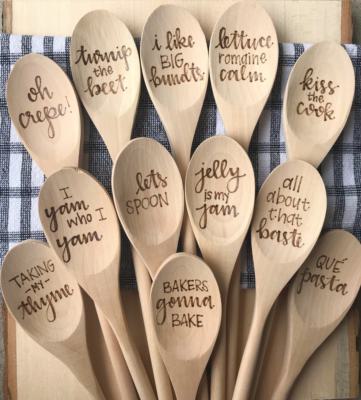 oh
crepe!
turnip
the
beet
i like
BIG
bundts
lettuce
romaine
calm
kiss
the
cook
I
yam
who I
yam
lets
SPOON
jelly
is my
jam
all
about
that
baste
TAKING
-MY-
thyme
BAKERS
gonna
BAKE
QUÉ
pasta